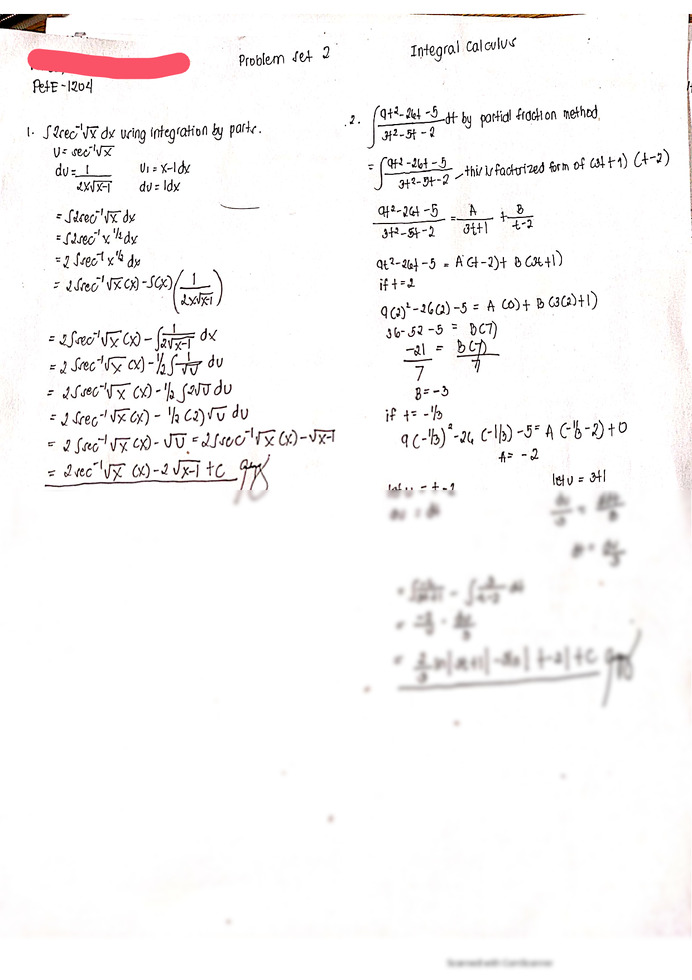 Problem set 2
Integral Calculus
PetE-1204
1. ∫2sec⁻¹√x dx using integration by parts.
U = sec⁻¹√x
du = 1/2x√x-1 U1 = x-1dx
du = 1dx
= ∫2sec⁻¹√x dx
= ∫2sec⁻¹ x^1/2 dx
= 2∫sec⁻¹ x^1/2 dx
= 2∫sec⁻¹√x (x) - ∫(x) (1/2x√x-1)
= 2∫sec⁻¹√x (x) - ∫1/2√x-1 dx
= 2∫sec⁻¹√x (x) - 1/2 ∫1/√U du
= 2∫sec⁻¹√x (x) - 1/2 ∫2√U du
= 2∫sec⁻¹√x (x) - 1/2 (2)√U du
= 2∫sec⁻¹√x (x) - √U = 2∫sec⁻¹√x (x) - √x-1
= 2sec⁻¹√x (x) - 2√x-1 + C
2. ∫9t²-26t-5/3t²-5t-2 dt by partial fraction method.
= ∫9t²-26t-5/3t²-5t-2 this is factorized form of (3t+1) (t-2)
9t²-26t-5/3t²-5t-2 = A/3t+1 + B/t-2
9t²-26t-5 = A(t-2) + B(3t+1)
if t=2
9(2)²-26(2)-5 = A(0) + B(3(2)+1)
36-52-5 = B(7)
-21/7 = B(7)/7
B = -3
if t = -1/3
9(-1/3)²-26(-1/3)-5 = A(-1/3-2)+0
A = -2
let u = 3t1